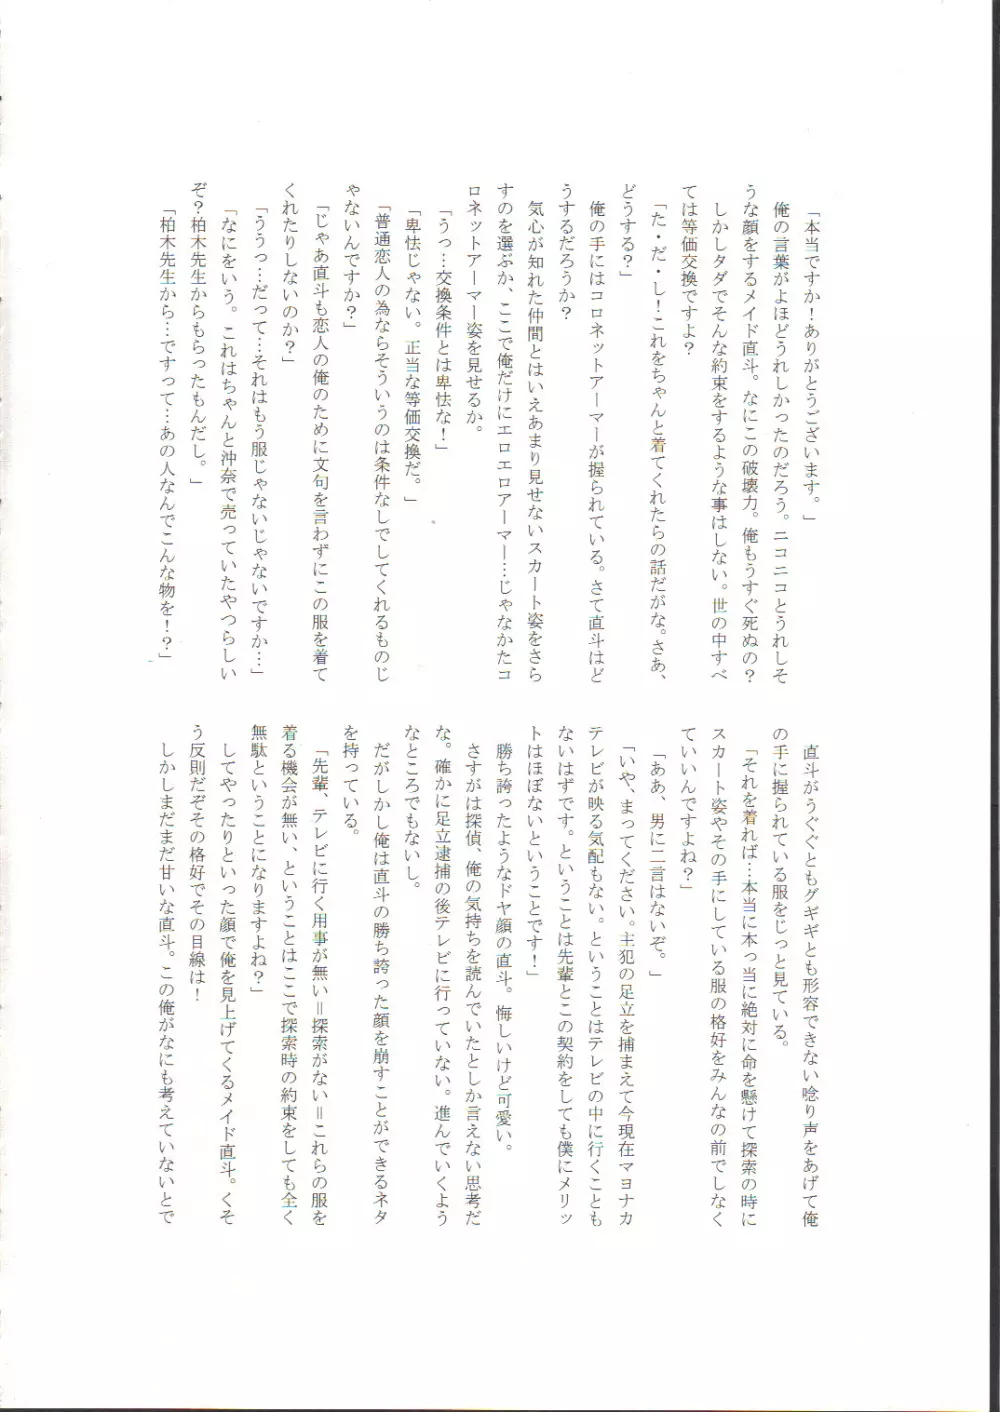 「本当ですか！ありがとうございます。」
俺の言葉がよほどうれしかったのだろう。ニコニコとうれしそ
うな顔をするメイド直斗。なにこの破壊力。俺もうすぐ死ぬの？
しかしタダでそんな約束をするような事はしない。世の中すべ
ては等価交換ですよ？
「た・だ・し！これをちゃんと着てくれたらの話だがな。さあ、
どうする？」
俺の手にはコロネットアーマーが握られている。さて直斗はど
うするだろうか？
気心が知れた仲間とはいえあまり見せないスカート姿をさら
すのを選ぶか、ここで俺だけにエロエロアーマー…じゃなかたコ
ロネットアーマー姿を見せるか。
「うっ…交換条件とは卑怯な！」
「卑怯じゃない。正当な等価交換だ。」
「普通恋人の為ならそういうのは条件なしでしてくれるものじ
ゃないんですか？」
「じゃあ直斗も恋人の俺のために文句を言わずにこの服を着て
くれたりしないのか？」
「ううっ…だって…それはもう服じゃないじゃないですか…」
「なにをいう。これはちゃんと沖奈で売っていたやつらしい
ぞ？柏木先生からもらったもんだし。」
「柏木先生から…ですって…あの人なんでこんな物を！？」
直斗がうぐぐともグギギとも形容できない唸り声をあげて俺
の手に握られている服をじっと見ている。
「それを着れば…本当に本っ当に絶対に命を懸けて探索の時に
スカート姿やその手にしている服の格好をみんなの前でしなく
ていいんですよね？」
「ああ、男に二言はないぞ。」
「いや、まってください。主犯の足立を捕まえて今現在マヨナカ
テレビが映る気配もない。ということはテレビの中に行くことも
ないはずです。ということは先輩とこの契約をしても僕にメリッ
トはほぼないということです！」
勝ち誇ったようなドヤ顔の直斗。悔しいけど可愛い。
さすがは探偵、俺の気持ちを読んでいたとしか言えない思考だ
な。確かに足立逮捕の後テレビに行っていない。進んでいくよう
なところでもないし。
だがしかし俺は直斗の勝ち誇った顔を崩すことができるネタ
を持っている。
「先輩、テレビに行く用事が無い＝探索がない＝これらの服を
着る機会が無い、ということはここで探索時の約束をしても全く
無駄ということになりますよね？」
してやったりといった顔で俺を見上げてくるメイド直斗。くそ
う反則だぞその格好でその目線は！
しかしまだまだ甘いな直斗。この俺がなにも考えていないとで